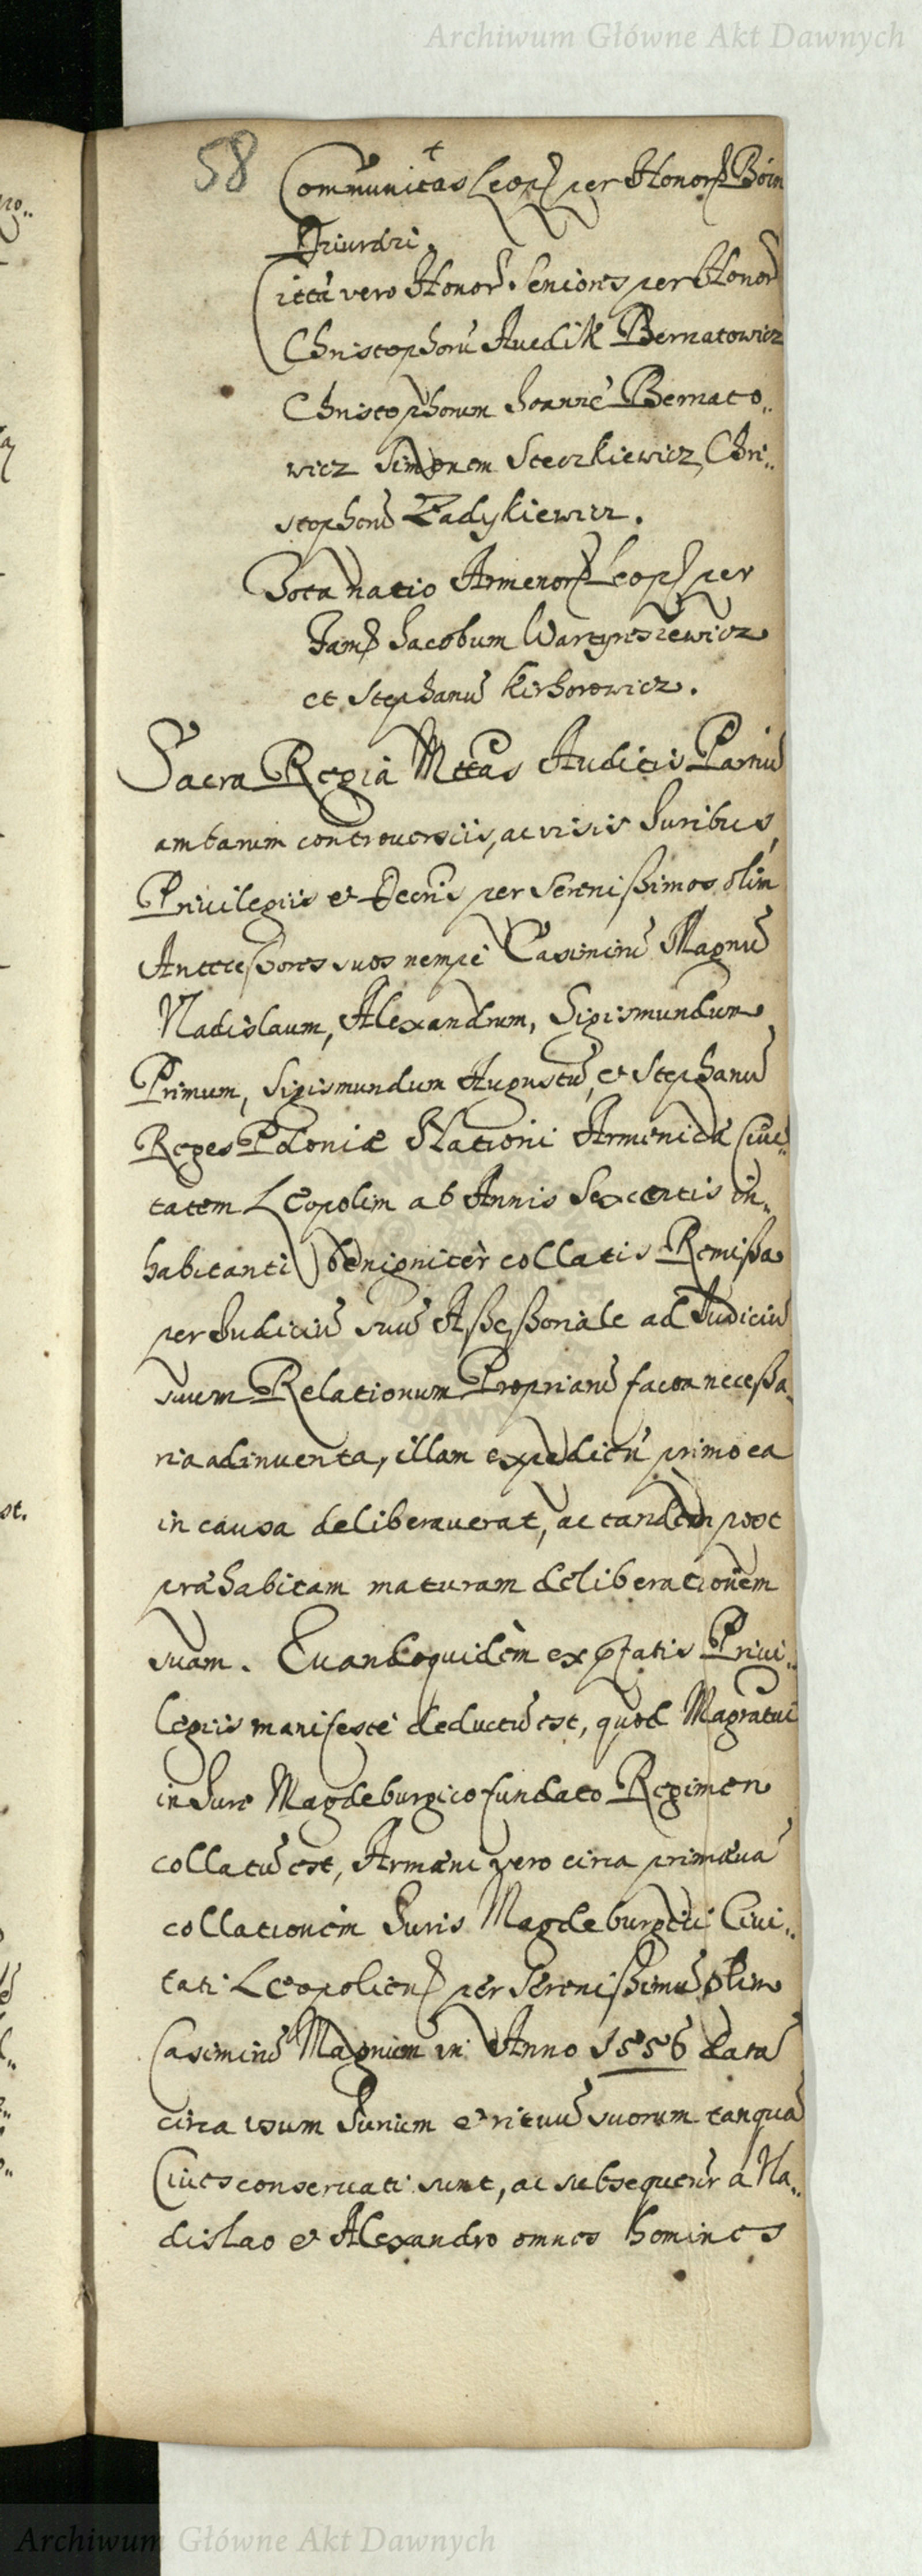 Archiwum Główne Akt Dawnych
58
Communitas Leopł per Honorł Boim
Dziurdzi.
Citta vero Honorł Seniores per Honorł
Christophorū Auedik Bernatowicz
Christophorum Joannē Bernato„
wicz Simonem Steczkiewicz, Chri„
stophorū Zadykiewicz.
Tota natio Armenorł Leopł per
Famł Jacobum Wartyresiewicz
et Stephanū Kirkorowicz.
Sacra Regia Mttas Auditis Partiū
ambarum controuersiis, ac visis Juribus,
Priuilegiis et Decrīs per Serenißimos olim
Anteceßores suos nempe Casimirū Magnū
Vladislaum, Alexandrum, Sigismundum
Primum, Sigismundum Augustū, et Stephanū
Reges Poloniæ Nationi Armenicæ Ciui„
tatem Leopolim ab Annis Sexcentis in„
habitanti benigniter collatis Remißa
per Judiciū suū Aßeßoriale ad Judiciū
suum Relationum Propriarū facōn neceßa„
ria adinuenta, illam expeditū primo ea
in causa deliberauerat, ac tandem post
præhabitam maturam deliberationem
suam. Quandoquidem ex pfatis Priui„
legiis manifeste deductū est, quod Magratui
in Jure Magdeburgico fundato Regimen
collatū est, Armæni vero circa primæuā
collationem Juris Magdeburgici Ciui„
tati Leopolienł per Serenißimū olim
Casimirū Magnum in Anno 1556 datā
circa usum Jurium et rituū suorum tanquā
Ciues conseruati sunt, ac subsequenr a Vla„
dislao et Alexandro omnes homines
Archiwum Główne Akt Dawnych